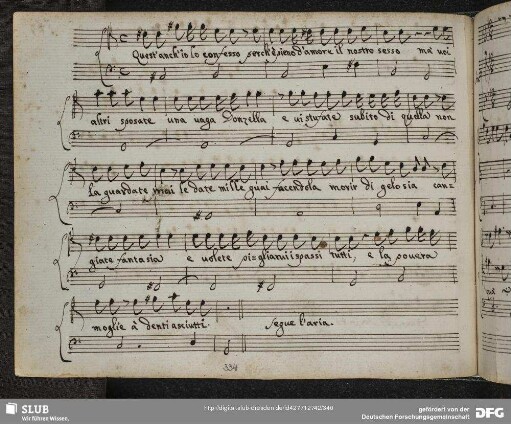 Quest'anch'io lo confesso perch'è sieno d'amore il nostro sesso ma voi
altri sposate una vaga Donzella e vi stufate subito di quella non
la guardate mai le date mille guai facendola morir di gelosia canz
giate fantasia e volete pigliarvi i spassi tutti, e la povera
moglie à denti asciutti. Segue l'aria.
334
SLUB
Wir führen Wissen.
gefördert von der
Deutschen Forschungsgemeinschaft
DFG